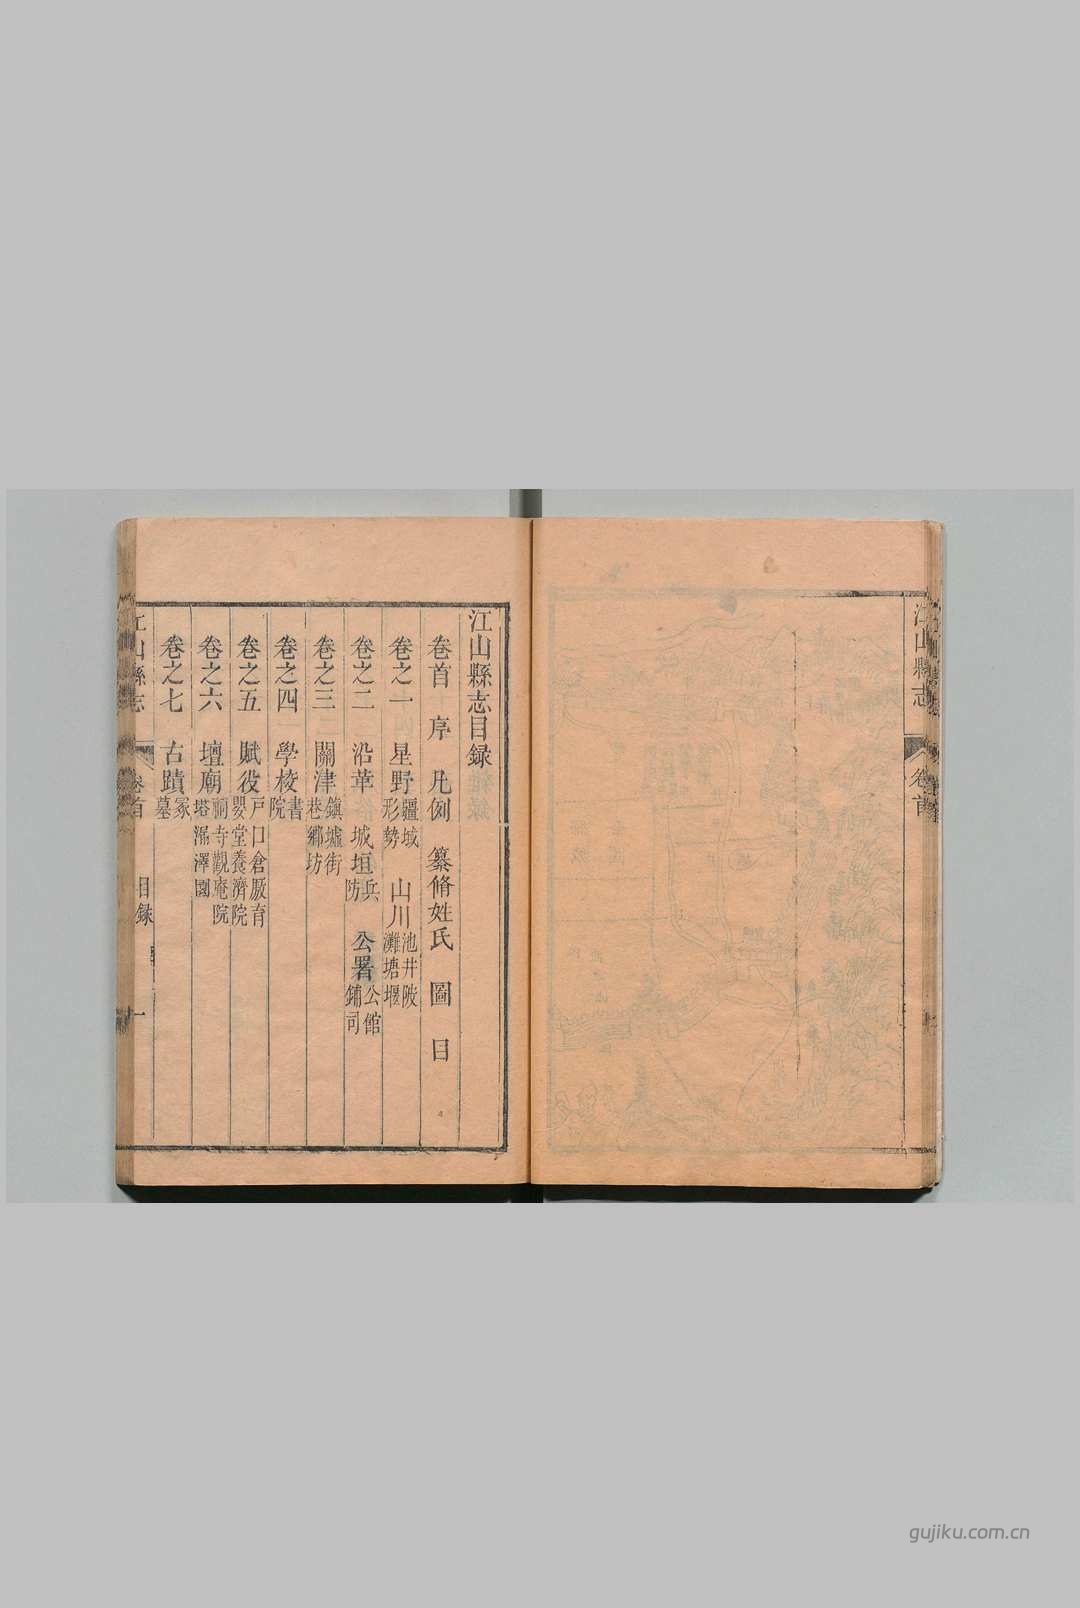 江山縣志
卷首
江山縣志目録
卷首 序 凡例 纂脩姓氏 圖 目
卷之一 星野 疆域形勢 山川 池井陂灘塘堰
卷之二 沿革 城垣 兵防 公署 公館鋪司
卷之三 關津 鎮墟街巷鄉坊
卷之四 學校 書院
卷之五 賦役 戸口倉厫育嬰堂養濟院
卷之六 壇廟 祠寺觀庵院塔漏澤園
卷之七 古蹟 冢墓
江山縣志
卷首
目録
一
gujiku.com.cn